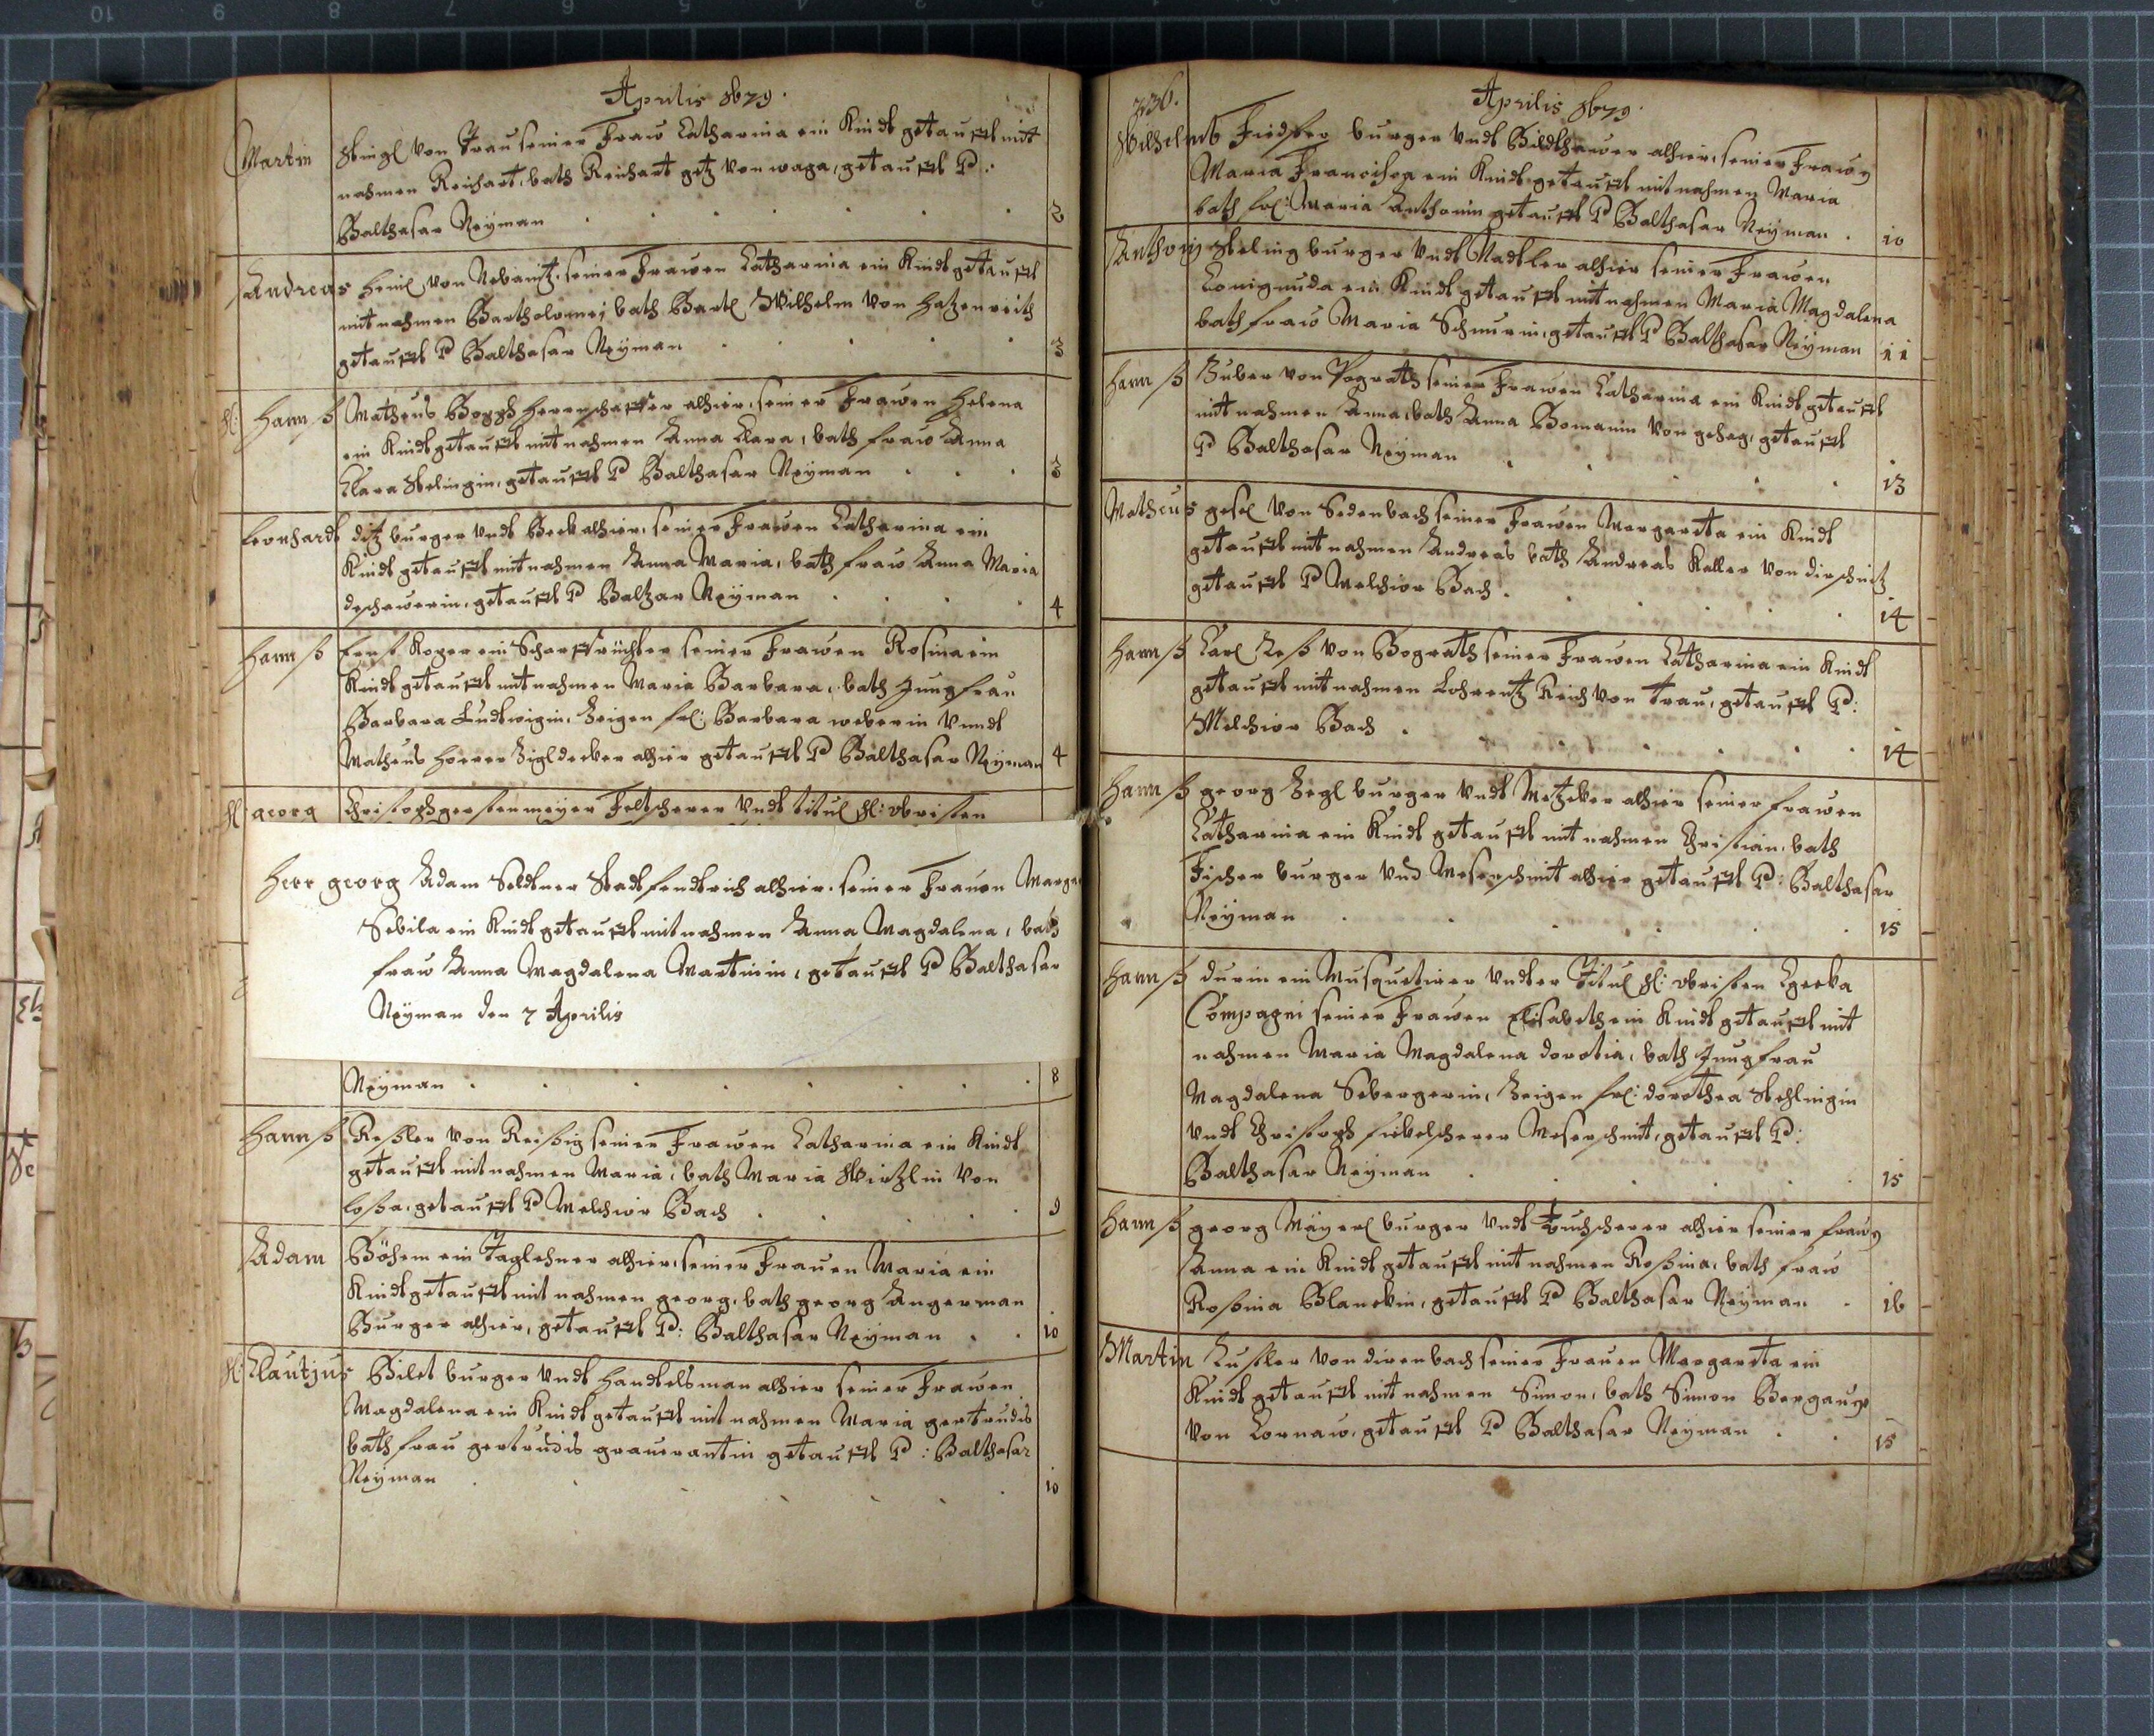 Aprilis 1679.
Martin Stingl von Trau seiner Fraw Catharina ein Kindt getaufft mit
nahmen Reichart, bath Reichart getz von waga, getaufft P:
Balthasar Neÿman 2
Andreas heinl von Nebanitz, seiner Frawen Catharina ein Kindt getaufft
mit nahmen Bartholomej bath Bartl Wilhelm von hatzenreith
getaufft P Balthasar Neÿman 3
H: Hannß Matheus alhier, seiner Frawen Helena
ein Kindt getaufft mit nahmen Anna Clara, bath fraw Anna
Clara Stelingin, getaufft P Balthasar Neÿman 3
Leonhardt ditz burger undt Beck alhier, seiner Frawen Catharina ein
Kindt getaufft mit nahmen Anna Maria, bath fraw Anna Maria
getaufft P Baltzar Neÿman 4
Hannß ein Scharpfrichter seiner Frawen Rosina ein
Kindt getaufft mit nahmen Maria Barbara, bath Jungfrau
Barbara Ludtwigin, Zeigen frl: Barbara weberin unndt
Matheus horrer Zigldecker alhier getaufft P Balthasar Neÿman 4
H georg Christoph gerstenmeÿer Feltscherer undt titul H: obristen
Herr georg Adam Seldtner Stadt fendtrich alhier, seiner Frauen
Sebila ein Kindt getaufft mit nahmen Anna Magdalena, bath
fraw Anna Magdalena Martinin, getaufft P Balthasar
Neÿman den 7 Aprilis
Neÿman 8
Hannß Keßler von Reißig seiner Frawen Catharina ein Kindt
getaufft mit nahmen Maria, bath Maria Wirtzlin von
loßa, getaufft P Melchior Bach 9
Adam Böhem ein Taglehner alhier, seiner Frauen Maria ein
Kindt getaufft mit nahmen georg, bath georg Angerman
Burger alhier, getaufft P: Balthasar Neÿman 10
H: Clautjus Bilet burger undt handtelsman alhier seiner Frawen
Magdalena ein Kindt getaufft mit nahmen Maria gertrudis
bath frau gertrudis grauerantin getaufft P: Balthasar
Neÿman 10
736. Aprilis 1679.
Wilhelmb burger undt Bildthawer alhier, seiner Frawen
Maria Francisca ein Kindt getaufft mit nahmen Maria
bath frl: Maria Anthonin getaufft P Balthasar Neÿman 10
Anthonj Steling burger undt Nadtler alhier seiner Frawen
Conigunda ein Kindt getaufft mit nahmen Maria Magdalena
bath fraw Maria Schnurin, getaufft P Balthasar Neÿman 11
Hannß Zuber von Pograth seiner Frawen Catharina ein Kindt getaufft
mit nahmen Anna, bath Anna Bomanin von gehag, getaufft
P Balthasar Neÿman 13
Matheus gesel von Sedenbach seiner Frawen Margareta ein Kindt
getaufft mit nahmen Andreas bath Andreas Kaller von dirschnitz
getaufft P Melchior Bach 14
Hannß Carl Zeß von Bograth seiner Frawen Catharina ein Kindt
getaufft mit nahmen Lohrentz Reich von Trau, getaufft P:
Melchior Bach 14
Hannß georg Zegl burger undt Metzcker alhier seiner frawen
Catharina ein Kindt getaufft mit nahmen Christian, bath
Fischer burger und Meserschmit alhier getaufft P: Balthasar
Neÿman 15
Hannß durin ein Musquetirer undter Titul H: obristen
Compagni seiner Frawen Elisabeth ein Kindt getaufft mit
nahmen Maria Magdalena dorotia, bath Jungfrau
Magdalena Sebergerin, Zeigen frl: dorothea Stehlingin
undt Christoph Meserschmit, getaufft P:
Balthasar Neÿman 15
Hannß georg Maÿerl burger undt Tuchscherer alhier seiner frawen
Anna ein Kindt getaufft mit nahmen Roßina, bath fraw
Roßina Blanckin, getaufft P Balthasar Neÿman 16
Martin Lustler von direnbach seiner Frauen Margareta ein
Kindt getaufft mit nahmen Simon, bath Simon
von Cornaw, getaufft P Balthasar Neÿman 15